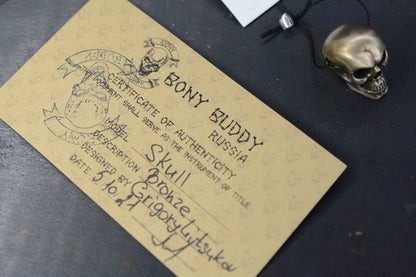 BONY BUDDY
RUSSIA
CERTIFICATE OF AUTHENTICITY
DOCUMENT SHALL SERVE AS THE INSTRUMENT OF TITLE
MODEL Skull
DESCRIPTION Bronze
DESIGNED BY Grigory
DATE 5.10.21